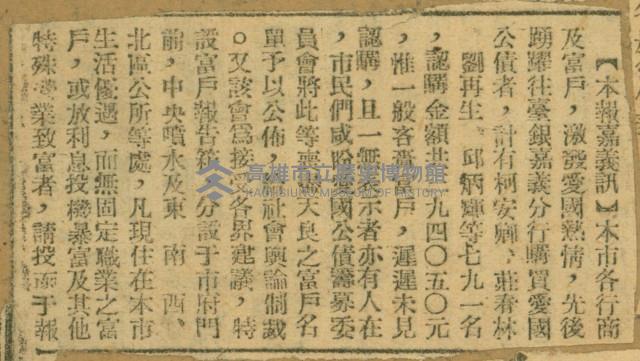 【本報嘉義訊】本市各行商
及富戶，激發愛國熱情，先後
踴躍往臺銀嘉義分行購買愛國
公債者，計有柯安卿、莊春林
、劉再生、邱炳輝等七九一名
，認購金額共 九四〇五〇元
，惟一般客嗇 戶，遲遲未見
認購，且一無表示者亦有人在
，市民們咸盼愛國公債籌募委
員會將此等喪 天良之富戶名
單予以公佈，社會輿論制裁
。又該會爲接 各界建議，特
設富戶報告箱 分設于市府門
前，中央噴水及東 南 西、
北區公所等處，凡現住在本市
生活優遇，而無固定職業之富
戶，或放利息投機暴富及其他
特殊 業致富者，請投函于報
高雄市立歷史博物館
KAOHSIUNG MUSEUM OF HISTORY